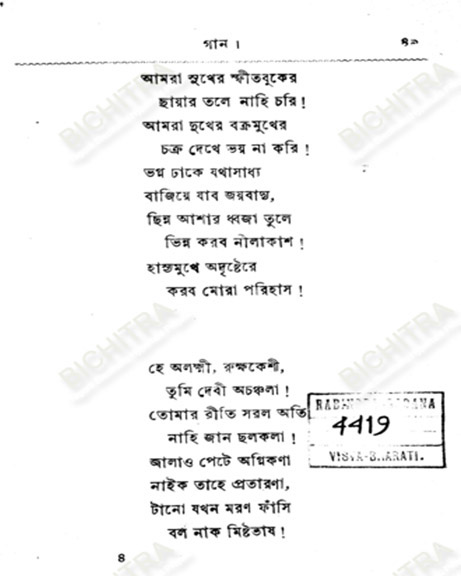 গান ।
৪৯
আমরা সুখের স্ফীতবুকের
ছায়ার তলে নাহি চরি !
আমরা দুখের বক্রমুখের
চক্র দেখে ভয় না করি !
ভগ্ন ঢাকে যথাসাধ্য
বাজিয়ে যাব জয়বাদ্য,
ছিন্ন আশার ধ্বজা তুলে
ভিন্ন করব নীলাকাশ !
হাস্যমুখে অদৃষ্টেরে
করব মোরা পরিহাস !
হে অলক্ষ্মী, রুক্ষকেশী,
তুমি দেবী অচঞ্চলা !
তোমার রীতি সরল অতি
নাহি জান ছলকলা !
জ্বালাও পেটে অগ্নিকণা
নাইক তাহে প্রতারণা,
টানো যখন মরণ ফাঁসি
বল নাক মিষ্টভাষ !
৪
RABINDRA-SADANA
4419
VISVA-BHARATI.
BICHITRA
BICHITRA
BICHITRA
BICHITRA
BICHITRA
BICHITRA